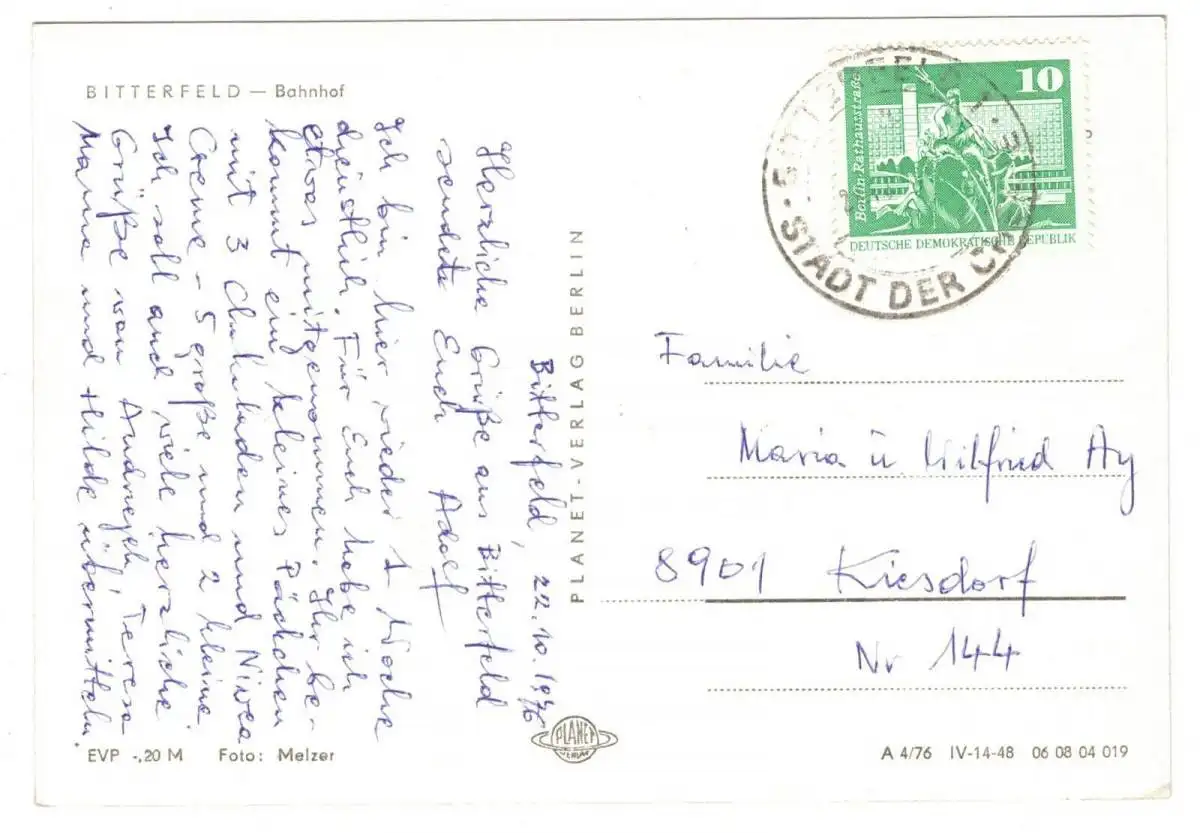 BITTERFELD — Bahnhof
Bitterfeld, 22.10.1976
Herzliche Grüße aus Bitterfeld
sendet Euch Adolf
Ich bin hier wieder 1 Woche
dienstlich. Für Euch habe ich
etwas mitgenommen. Ihr be-
kommt ein kleines Päckchen
mit 3 Schokoladen und Nivea
Creme - 5 große und 2 kleine
Ich soll auch viele herzliche
Grüße von Andrzej, Teresa
Mama und Hilde übermitteln.
EVP -,20 M Foto: Melzer
PLANET-VERLAG BERLIN
PLANET
VERLAG
10
Berlin Rathausstraße
DEUTSCHE DEMOKRATISCHE REPUBLIK
STADT DER
Familie
Maria u. Wilfried Ay
8901 Kiesdorf
Nr 144
A 4/76 IV-14-48 06 08 04 019